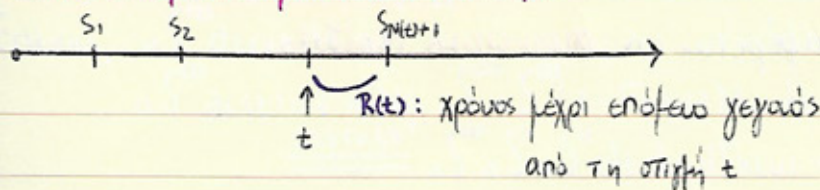 S₁ S₂ S_{N(t)+1}
R(t): χρόνος μέχρι επόμενο γεγονός
t από τη στιγμή t